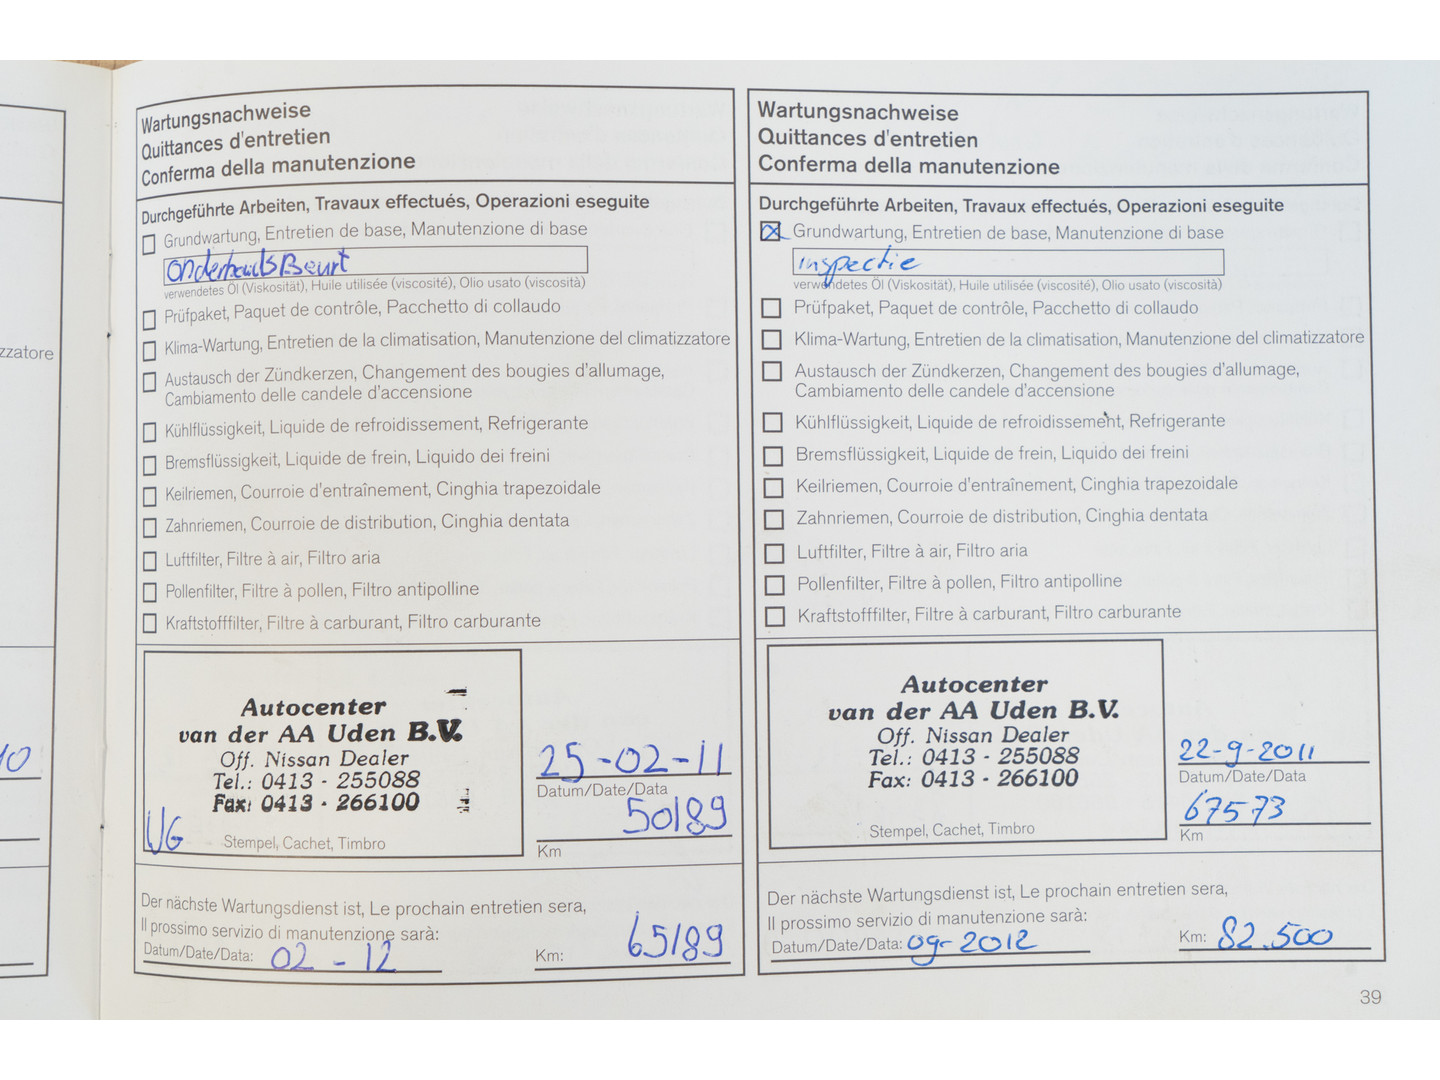 zzatore
10
Wartungsnachweise
Quittances d'entretien
Conferma della manutenzione
Durchgeführte Arbeiten, Travaux effectués, Operazioni eseguite
Grundwartung, Entretien de base, Manutenzione di base
OnderhoudsBeurt
verwendetes Öl (Viskosität), Huile utilisée (viscosité), Olio usato (viscosità)
Prüfpaket, Paquet de contrôle, Pacchetto di collaudo
Klima-Wartung, Entretien de la climatisation, Manutenzione del climatizzatore
Austausch der Zündkerzen, Changement des bougies d'allumage,
Cambiamento delle candele d'accensione
Kühlflüssigkeit, Liquide de refroidissement, Refrigerante
Bremsflüssigkeit, Liquide de frein, Liquido dei freini
Keilriemen, Courroie d'entraînement, Cinghia trapezoidale
Zahnriemen, Courroie de distribution, Cinghia dentata
Luftfilter, Filtre à air, Filtro aria
Pollenfilter, Filtre à pollen, Filtro antipolline
Kraftstofffilter, Filtre à carburant, Filtro carburante
Autocenter
van der AA Uden B.V.
Off. Nissan Dealer
Tel.: 0413 - 255088
Fax: 0413 - 266100
VG
Stempel, Cachet, Timbro
25-02-11
Datum/Date/Data
50189
Km
Der nächste Wartungsdienst ist, Le prochain entretien sera,
Il prossimo servizio di manutenzione sarà:
Datum/Date/Data: 02 - 12
Km: 65189
Wartungsnachweise
Quittances d'entretien
Conferma della manutenzione
Durchgeführte Arbeiten, Travaux effectués, Operazioni eseguite
Grundwartung, Entretien de base, Manutenzione di base
inspectie
verwendetes Öl (Viskosität), Huile utilisée (viscosité), Olio usato (viscosità)
Prüfpaket, Paquet de contrôle, Pacchetto di collaudo
Klima-Wartung, Entretien de la climatisation, Manutenzione del climatizzatore
Austausch der Zündkerzen, Changement des bougies d'allumage,
Cambiamento delle candele d'accensione
Kühlflüssigkeit, Liquide de refroidissement, Refrigerante
Bremsflüssigkeit, Liquide de frein, Liquido dei freini
Keilriemen, Courroie d'entraînement, Cinghia trapezoidale
Zahnriemen, Courroie de distribution, Cinghia dentata
Luftfilter, Filtre à air, Filtro aria
Pollenfilter, Filtre à pollen, Filtro antipolline
Kraftstofffilter, Filtre à carburant, Filtro carburante
Autocenter
van der AA Uden B.V.
Off. Nissan Dealer
Tel.: 0413 - 255088
Fax: 0413 - 266100
Stempel, Cachet, Timbro
22-9-2011
Datum/Date/Data
67573
Km
Der nächste Wartungsdienst ist, Le prochain entretien sera,
Il prossimo servizio di manutenzione sarà:
Datum/Date/Data: 09-2012
Km: 82.500
39